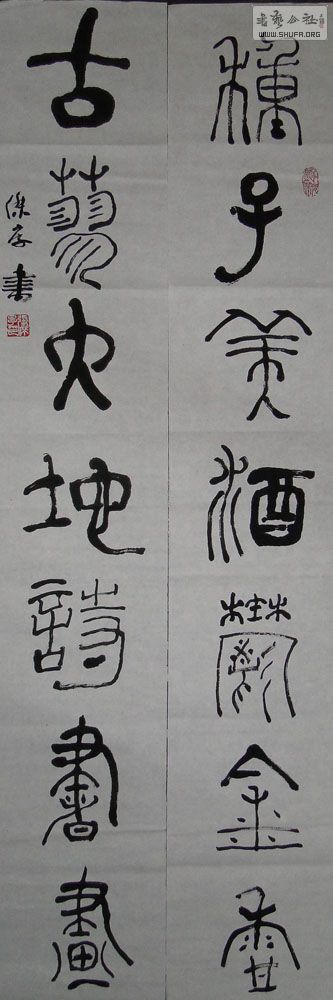 書藝公社
WWW.SHUFA.ORG
種子美酒鬱金香
古大地詩書畫
書